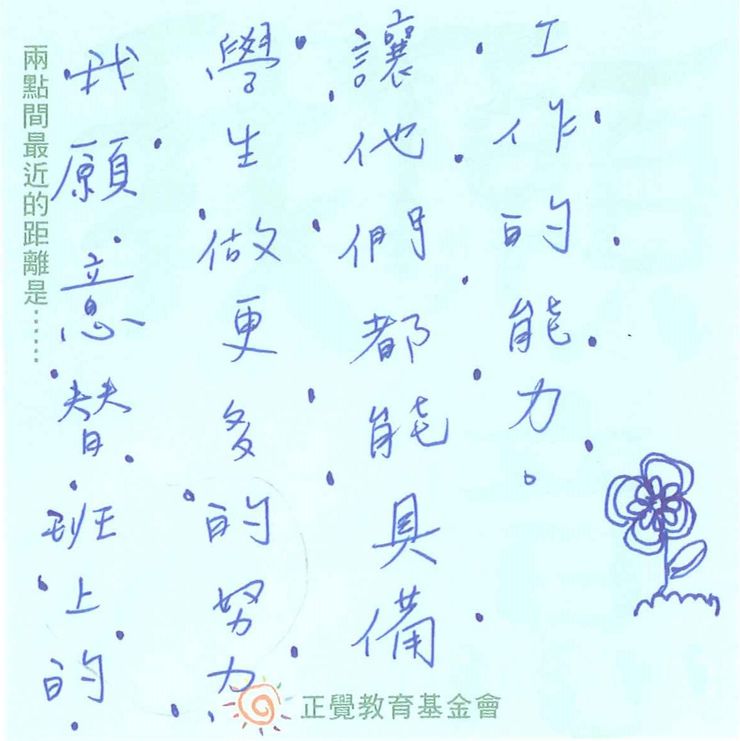 兩點間最近的距離是……
我願意替班上的
學生做更多的努力
讓他們都能具備
工作的能力。
正覺教育基金會